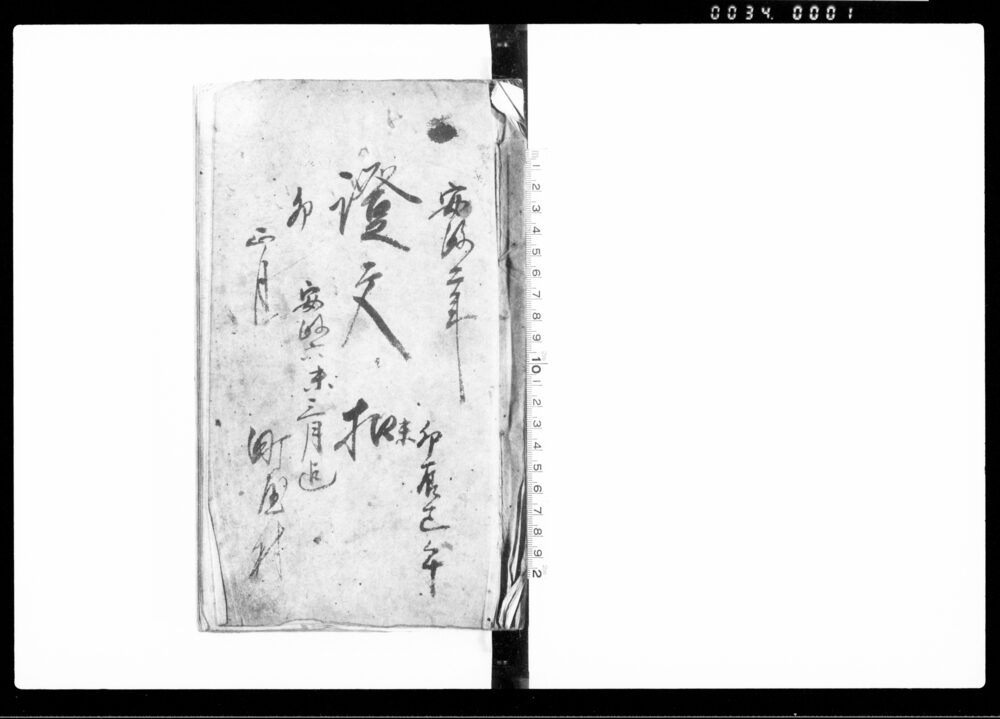 0034. 0001
安政二年
卯辰巳午
未
證文扣
卯
正月
安政六未三月迄
町屋村
1 2 3 4 5 6 7 8 9 10 1 2 3 4 5 6 7 8 9 2